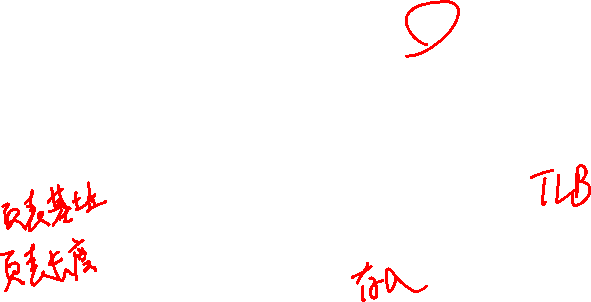 TLB
页表基址
页表长度
存入